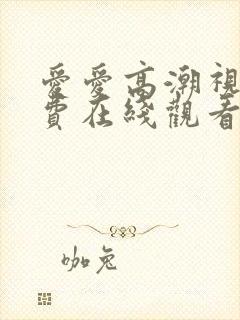 愛愛高潮視
費在綫觀看
咖兔